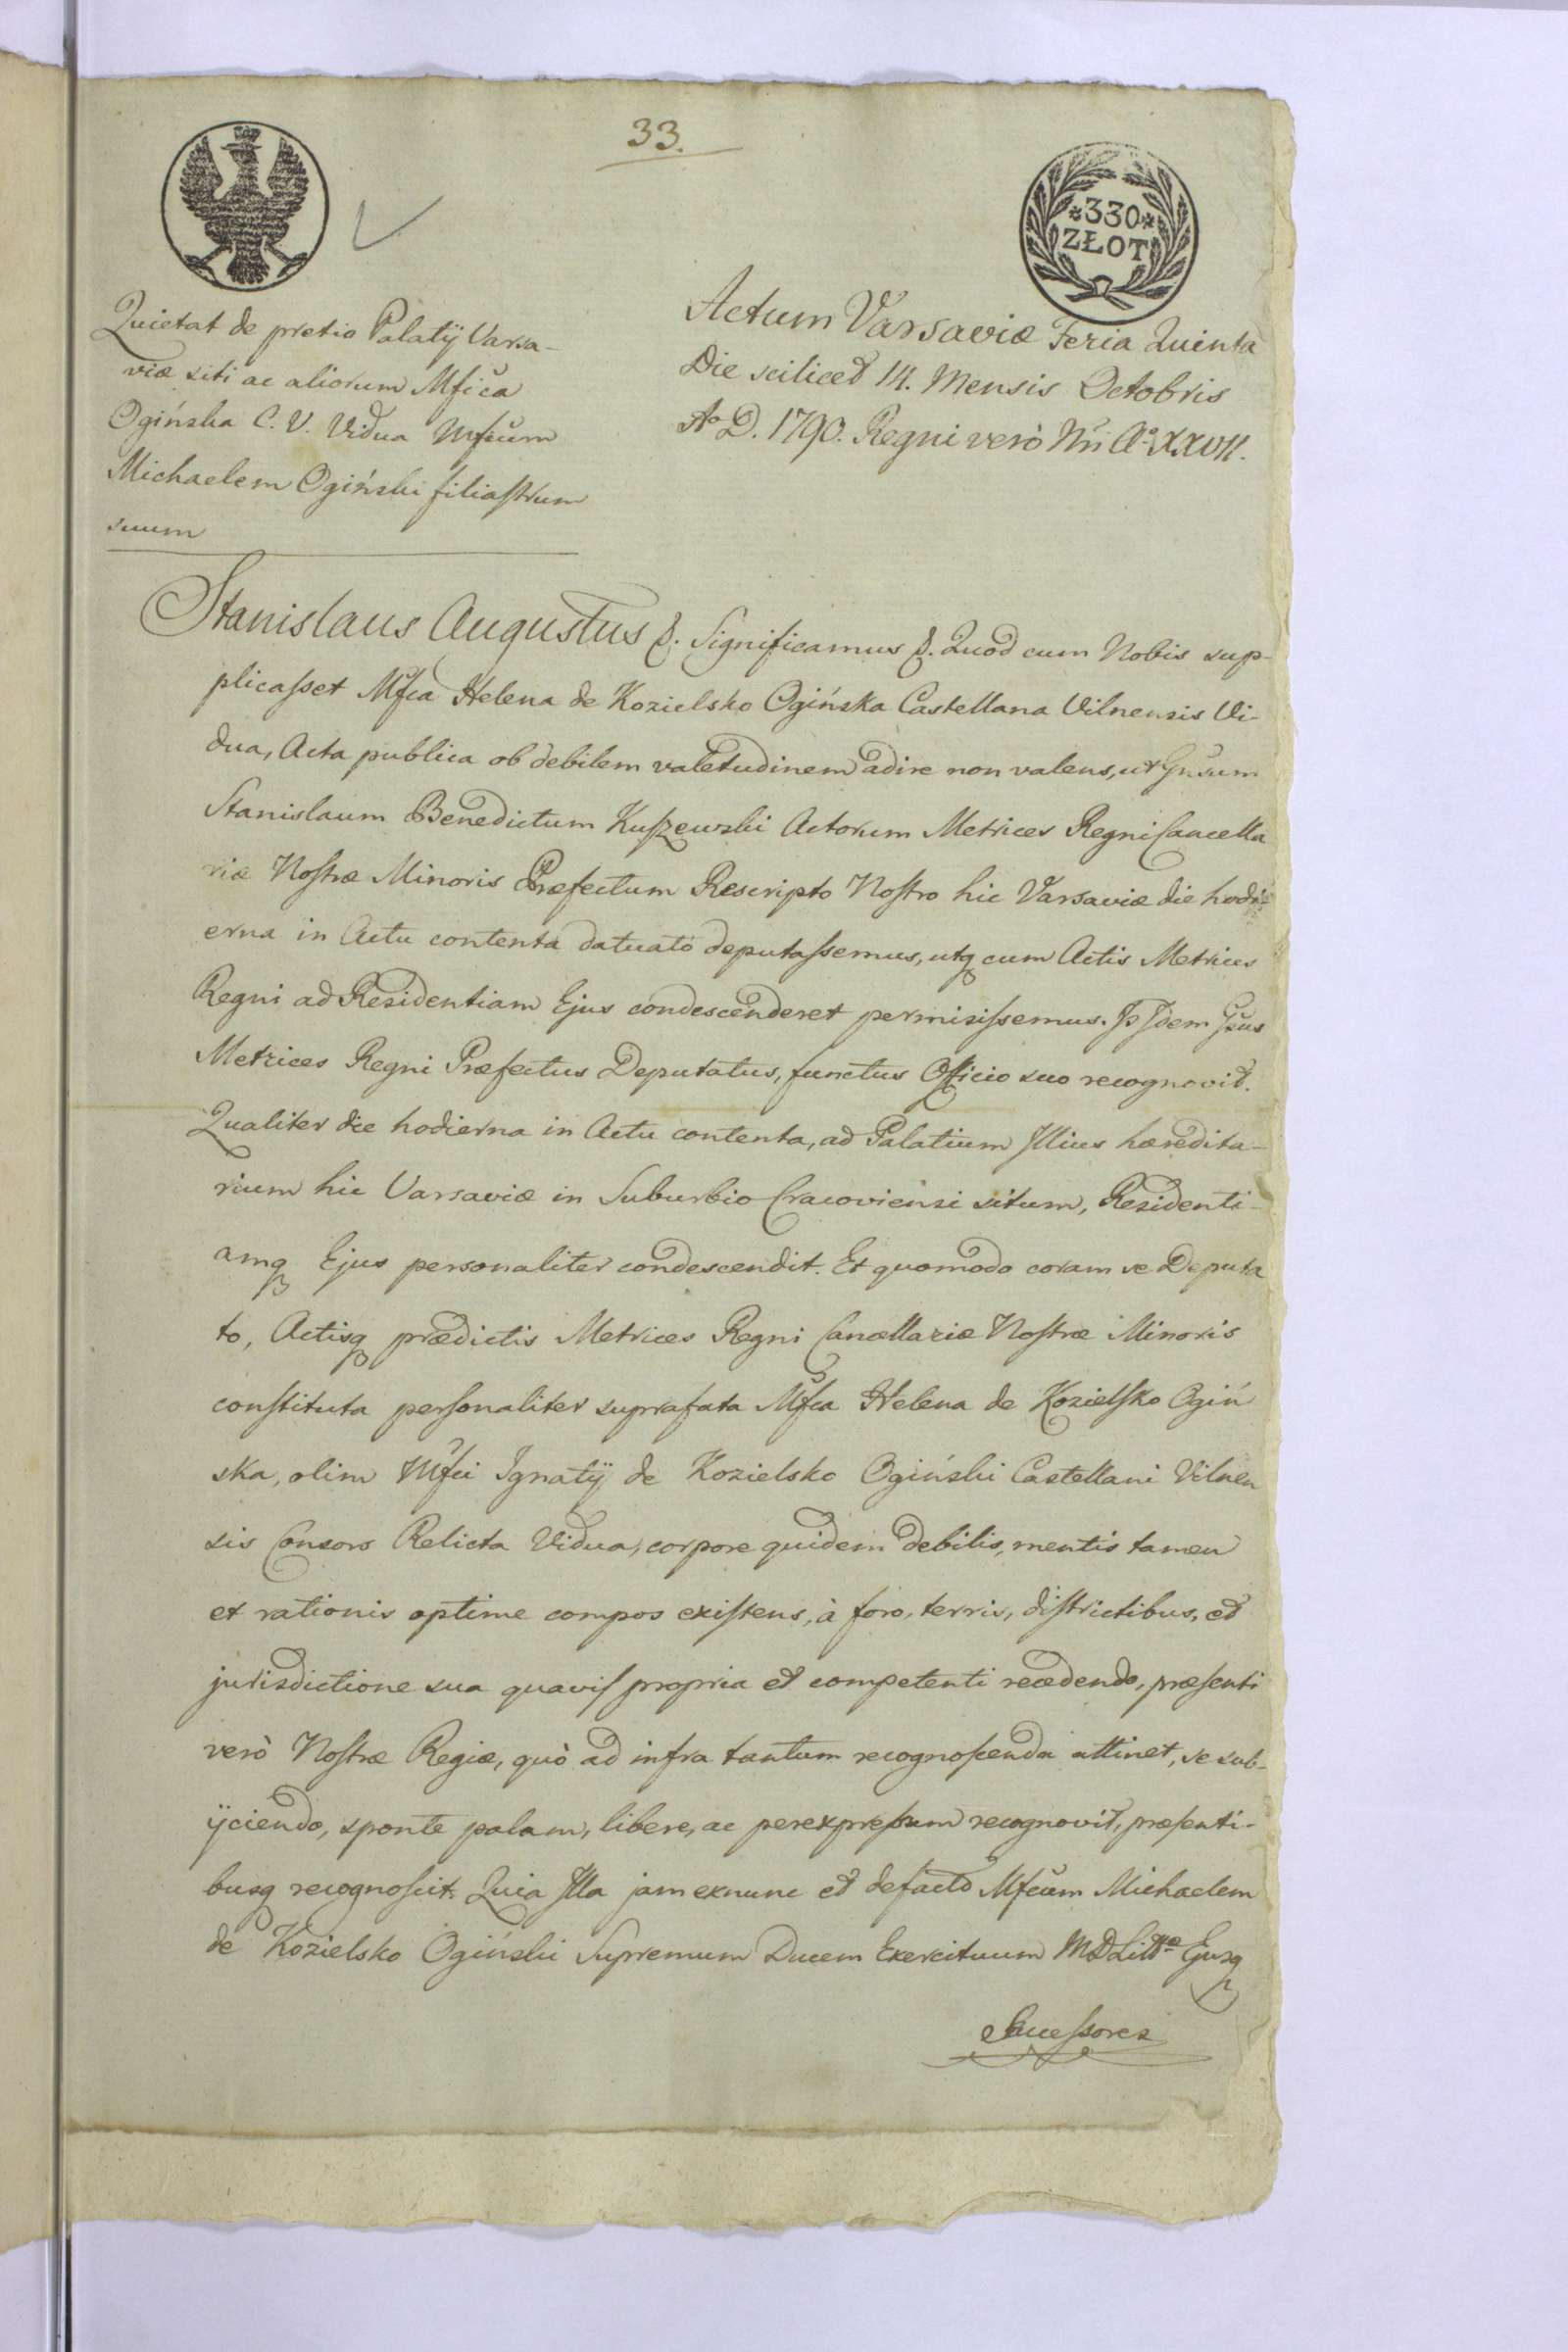 33.
*330*
ZŁOT
Quietat de pretio Palatÿ Varsa-
viæ siti ac aliorum Mfica
Ogińska C. V. Vidua Mficum
Michaelem Ogiński filiastrum
suum
Actum Varsaviæ Feria Quinta
Die scilicet 14. Mensis Octobris
Ao D. 1790. Regni verò Nri Ao XXVII.
Stanislaus Augustus &. Significamus &. Quod cum Nobis sup-
plicaſset Mfca Helena de Kozielsko Ogińska Castellana Vilnensis Vi-
dua, Acta publica ob debilem valetudinem adire non valens, ut Gnsum
Stanislaum Benedictum Kuſzewski Actorum Metrices Regni Cancella
riæ Noſtræ Minoris Præfectum Rescripto Noſtro hic Varsaviæ die hodi-
erna in Actu contenta datuato deputaſsemus, utq cum Actis Metrices
Regni ad Residentiam Ejus condescenderet permisiſsemus. Idem Gsus
Metrices Regni Præfectus Deputatus, functus Officio suo recognovit.
Qualiter die hodierna in Actu contenta, ad Palatium Illius hæredita-
rium hic Varsaviæ in Suburbio Cracoviensi situm, Residenti-
amq Ejus personaliter condescendit. Et quomodo coram se Deputa
to, Actisq prædictis Metrices Regni Cancellariæ Noſtræ Minoris
conſtituta perſonaliter suprafata Mfca Helena de Kozielſko Ogiń
ska, olim Mfci Ignatÿ de Kozielsko Ogiński Castellani Vilnen
sis Consors Relicta Vidua, corpore quidem debilis, mentis tamen
et rationis optime compos exiſtens, à foro, terris, diſtrictibus, et
jurisdictione sua quaviſ propria et competenti recedendo, præſenti
verò Noſtræ Regiæ, quò ad infra tantum recognoſcenda attinet, se sub-
ÿciendo, sponte palam, libere, ac per expreſsum recognovit, præſenti-
busq recognoſcit. Quia Illa jam exnunc et defacto Mfcum Michaelem
de Kozielsko Ogiński Supremum Ducem Exercituum MDLittæ Ejusq
Succeſsores